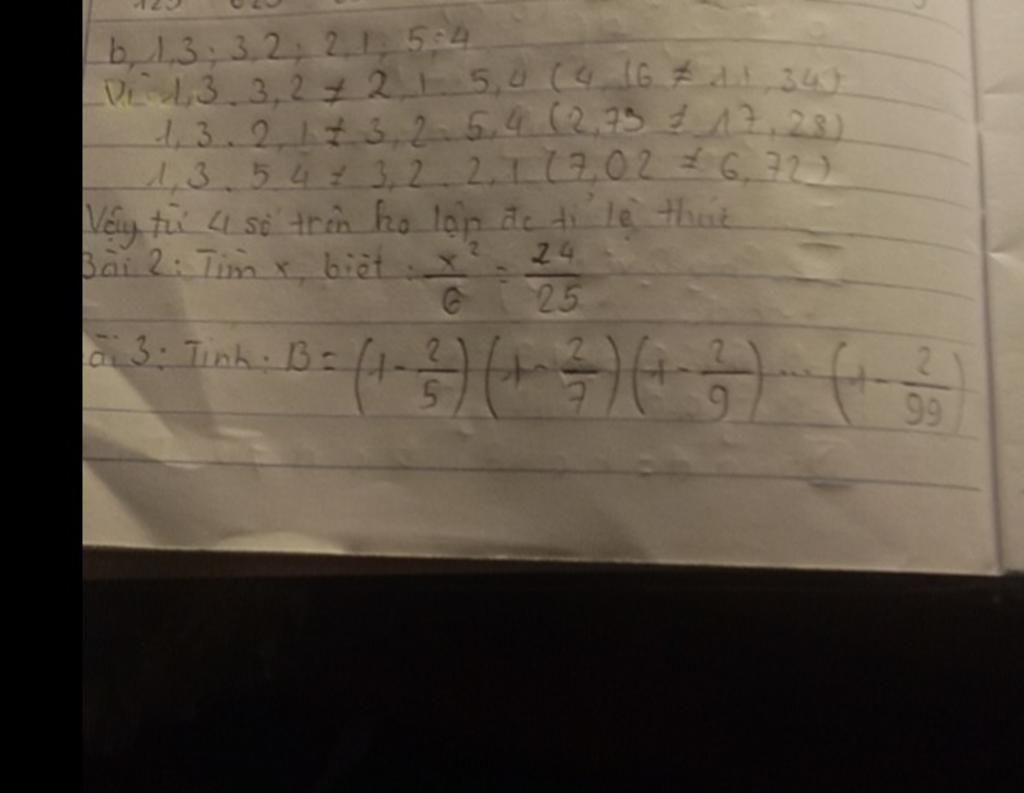 125 625
b, 1,3 ; 3,2 ; 2,1 ; 5,4
Vì 1,3 . 3,2 ≠ 2,1 . 5,4 (4,16 ≠ 11,34)
1,3 . 2,1 ≠ 3,2 . 5,4 (2,73 ≠ 17,28)
1,3 . 5,4 ≠ 3,2 . 2,1 (7,02 ≠ 6,72)
Vậy từ 4 số trên ko lập đc tỉ lệ thức
Bài 2: Tìm x, biết: x²/6 = 24/25
ài 3: Tính: B = (1 - 2/5) (1 - 2/7) (1 - 2/9) ... (1 - 2/99)